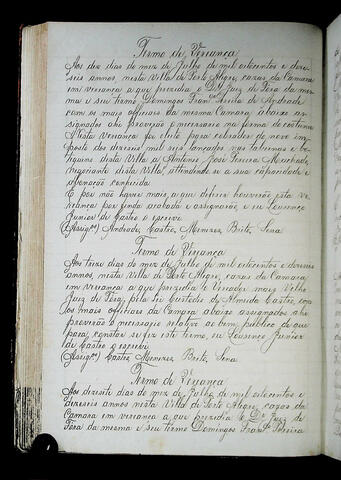 Termo de Veriança
Aos dez dias do mez de Julho de mil oitocentos e deze-
seis annos, nesta Villa de Porto Alegre, cazas da Camara
em veriança a que prezidio o Dr. Juiz de Fóra da mes-
ma e seu termo Domingos Franco Pereira de Andrade
com os mais officiaes da mesma Camara, abaixo as-
signados ahi proverão o necessario na forma do costume
Nesta veriança foi eleito para cobrador do novo im-
posto dos dezeseis mil seis lançados nas tabernas e bo-
tiquins desta Villa a Antonio José Pereira Machado,
negociante desta Villa, attendendo se a sua capacidade e
abonação conhecida
E por não haver mais a que deferir houverão esta ve-
riança por finda acabada e assignarão, e eu Lourenço
Junior de Castro o escrevi
(Assignos) Andrade, Castro, Menezes, Brito, Sena
Termo de Veriança
Aos treze dias do mez de Julho de mil oitocentos e dezeseis
annos, nesta Villa de Porto Alegre, cazas da Camara
em veriança a que prezidio o Veriador mais Velho
Juiz de Fóra pela lei Custodio de Almeida Castro, com
os mais officiaes da Camara abaixo assignados ahi
proverão o necessario relativo ao bem publico de que
para constar se fez este termo, eu Lourenço Junior
de Castro o escrevi
(Assignos) Castro, Menezes, Brito, Sena
Termo de Veriança
Aos dezesete dias do mez de Julho de mil oitocentos e
dezeseis annos nesta Villa de Porto Alegre, cazas da
Camara em veriança a que prezidio o Dr. Juiz de
Fóra da mesma e seu termo Domingos Franco Pereira